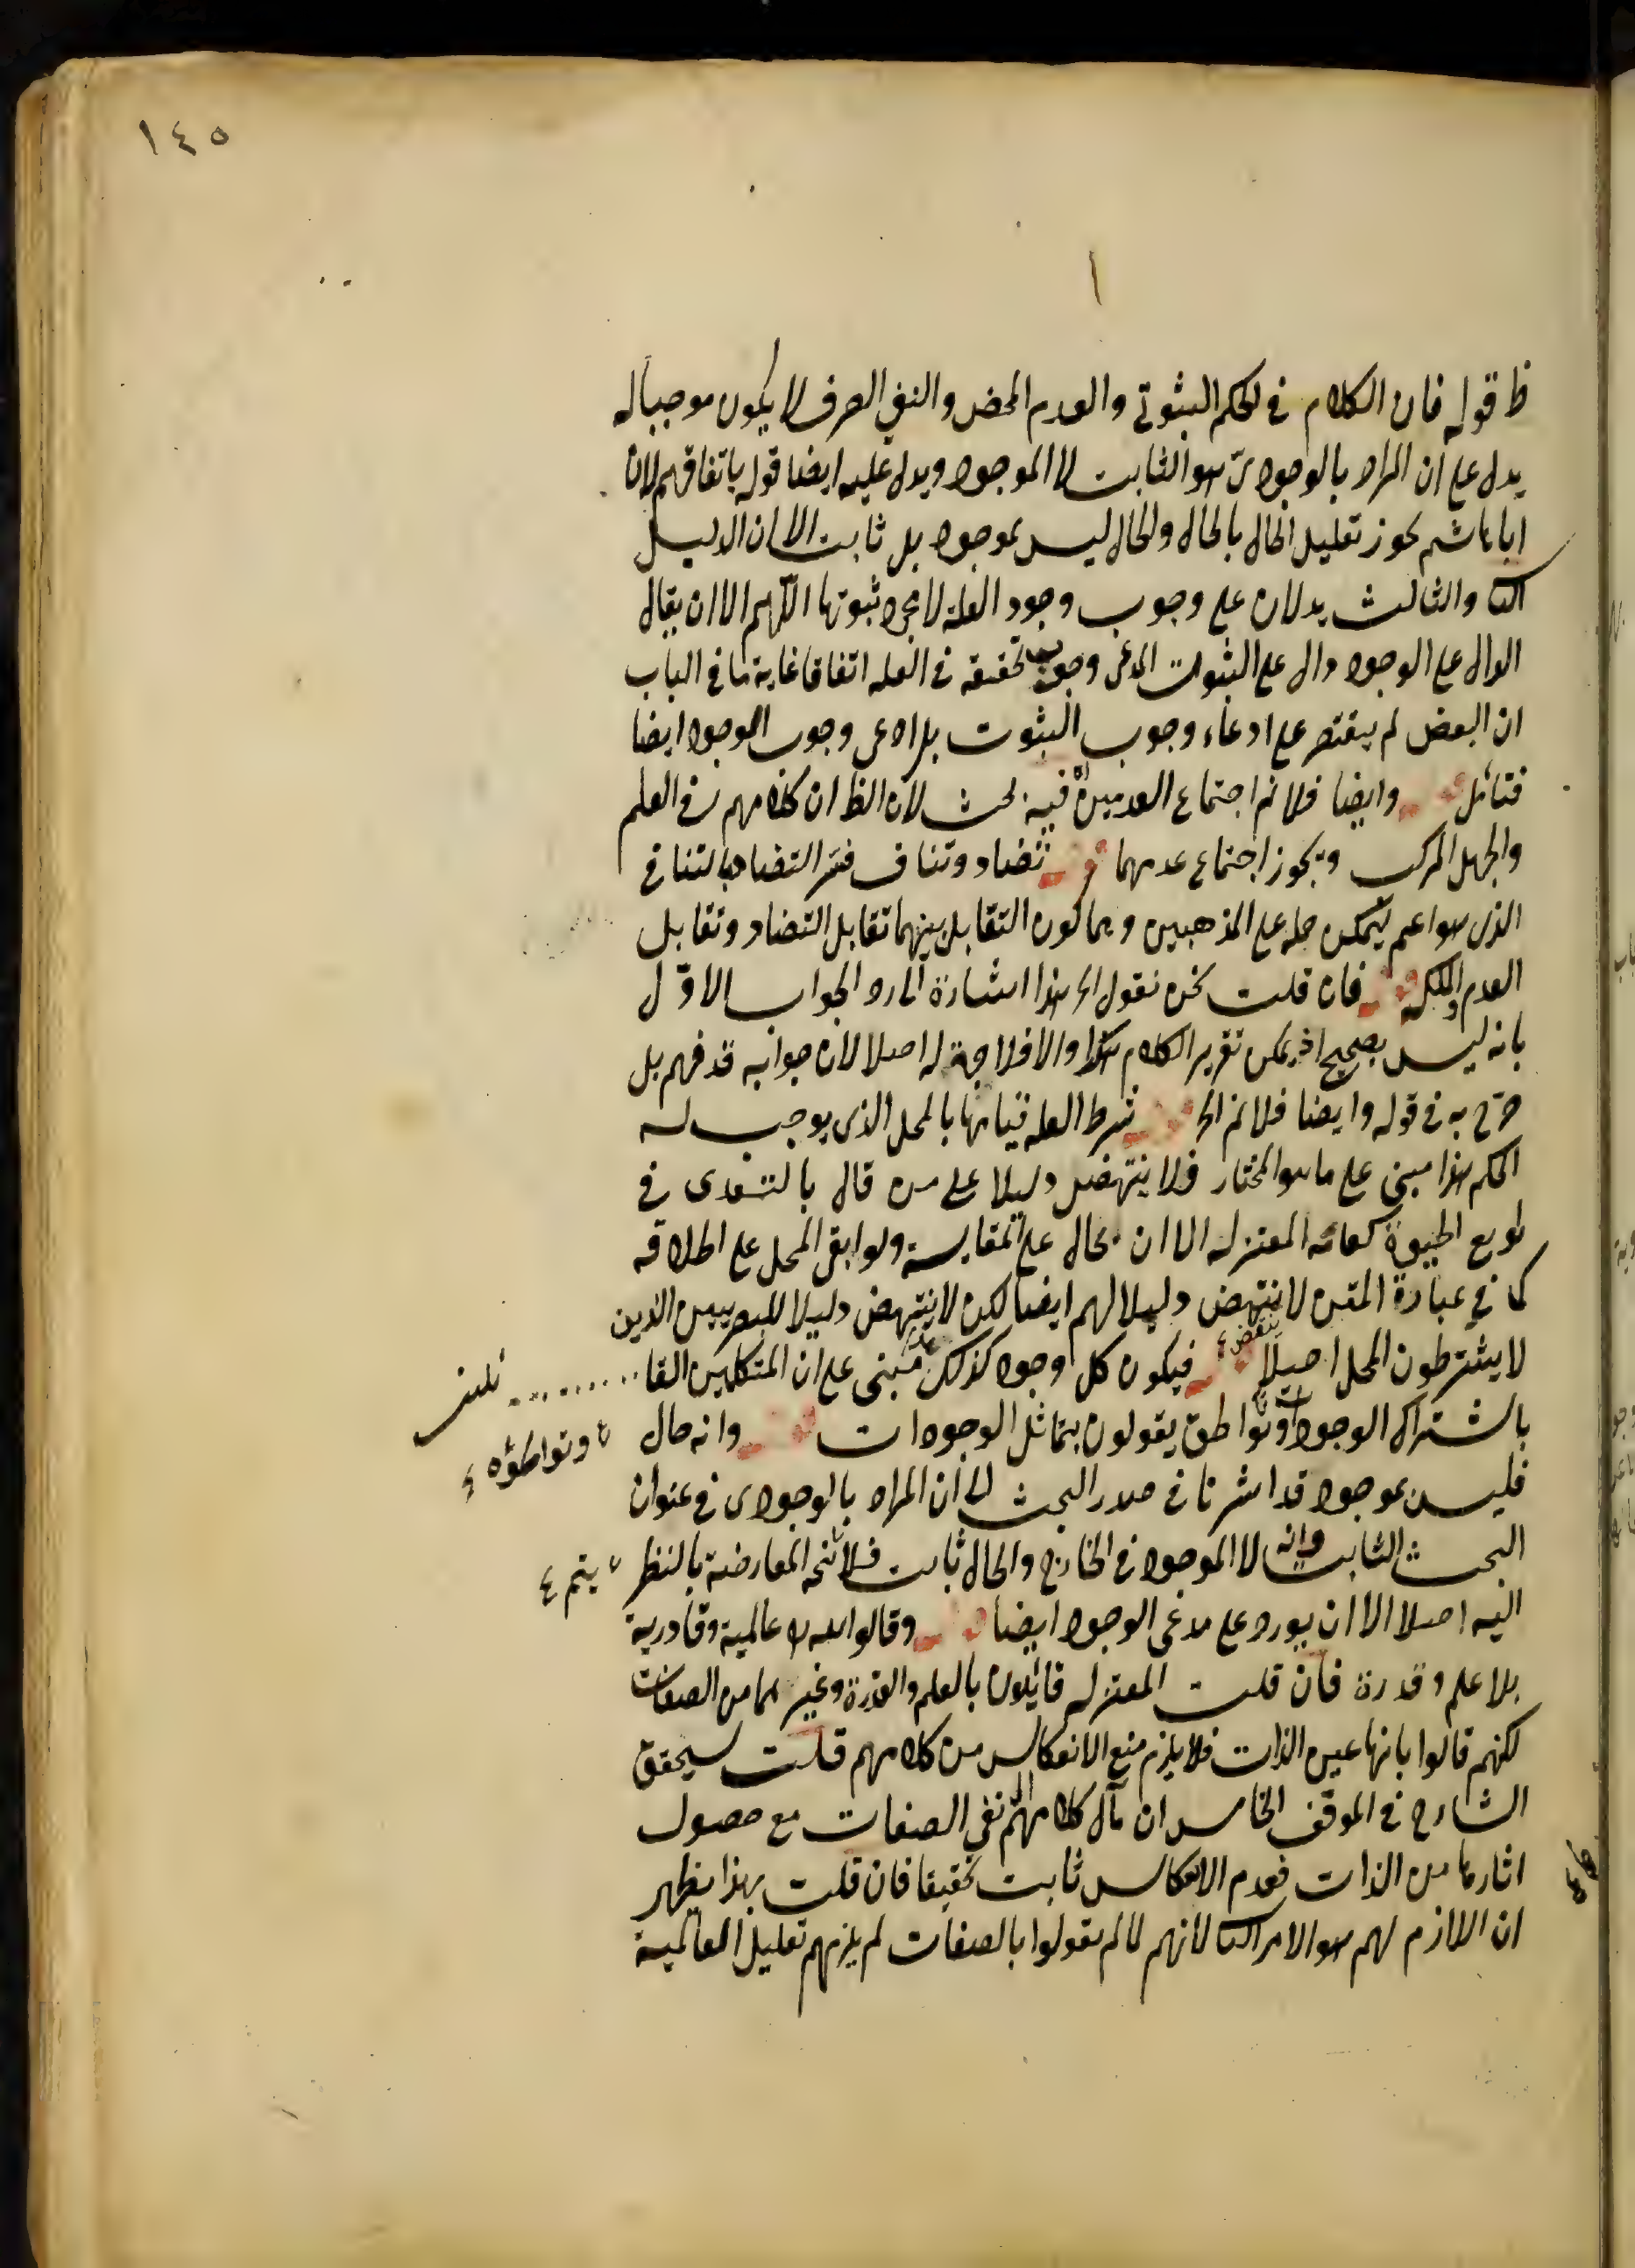 ١٤٥
ظ قوله فان الكلام فى الحكم الثبوتى والعدم المحض والنفى الصرف لا يكون موجبا له
يدل على ان المراد بالوجودى هو الثابت لا الموجود ويدل عليه ايضا قوله باتفاقهم لان
اباهاشم يجوز تعليل الحال بالحال والحال ليس بموجود بل ثابت الا ان الدليل
الثا والثالث يدلان على وجوب وجود العلة لا مجرد ثبوتها اللهم الا ان يقال
الدال على الوجود دال على الثبوت المدعى وجوب تحققه فى العله اتفاقا غاية ما فى الباب
ان البعض لم يقتصر على ادعاء وجوب الثبوت بل ادعى وجوب الوجود ايضا
فتأمل قوله وايضا فلا نم اجتماع العدمين فيه بحث لان الظ ان كلامهم فى العلم
والجهل المركب ويجوز اجتماع عدمهما قوله تضاد وتناف فسر التضاد بالتنافى
الذى هو اعم ليمكن حمله على المذهبين وهما كون التقابل بينهما تقابل التضاد وتقابل
العدم والملكه قوله فان قلت نحن نقول الخ هذا اشارة الى رد الجواب الاوّل
بانه ليس بصحيح اذ يمكن تقرير الكلام هكذا والا فلا وجه له اصلا لان جوابه قد فهم بل
صرّح به فى قوله وايضا فلا نم الخ قوله شرط العله قيامها بالمحل الذى يوجب له
الحكم هذا مبنى على ما هو المختار فلا ينتهض دليلا على من قال بالتعدى فى
توابع الحيوة كعامة المعتزله الا ان يحال على المقايسة ولو ابقى المحل على اطلاقه
كما فى عبارة المتن لا ينتهض دليلا لهم ايضا لكن لا ينتهض دليلا للبصريين الذين
لا يشترطون المحل اصلا قوله فيكون كل وجود كذلك مبنى على ان المتكلمين القا....... ئلين
باشتراك الوجود وتواطؤه يقولون بتماثل الوجودات قوله وانه حال
وتواطؤه
فليس بموجود قد اشرنا فى صدر البحث الى ان المراد بالوجودى فى عنوان
البحث الثابت وانه لا الموجود فى الخارج والحال ثابت فلا تتجه المعارضة بالنظر
يتم
اليه اصلا الا ان يورد على مدعى الوجود ايضا قوله وقالوا لله عالمية وقادرية
بلا علم وقدرة فان قلت المعتزله قائلون بالعلم والقدرة وغيرهما من الصفات
لكنهم قالوا بانها عين الذات فلا يلزم منع الانعكاس من كلامهم قلت سيحقق
الشارح فى الموقف الخامس ان مآل كلامهم نفى الصفات مع حصول
اثارها من الذات فعدم الانعكاس ثابت تحقيقا فان قلت بهذا يظهر
ان اللازم لهم هو الامر الثا لانهم لما لم يقولوا بالصفات لم يلزمهم تعليل العالمية